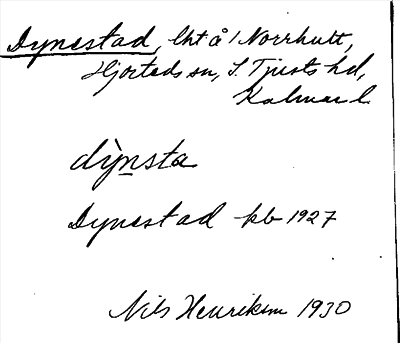 Dynestad, lht å / Norrhult,
Hjorteds sn, S. Tjusts hd,
Kalmar l.
dỳnsta
Dynestad kb 1927
Nils Henriksm 1930